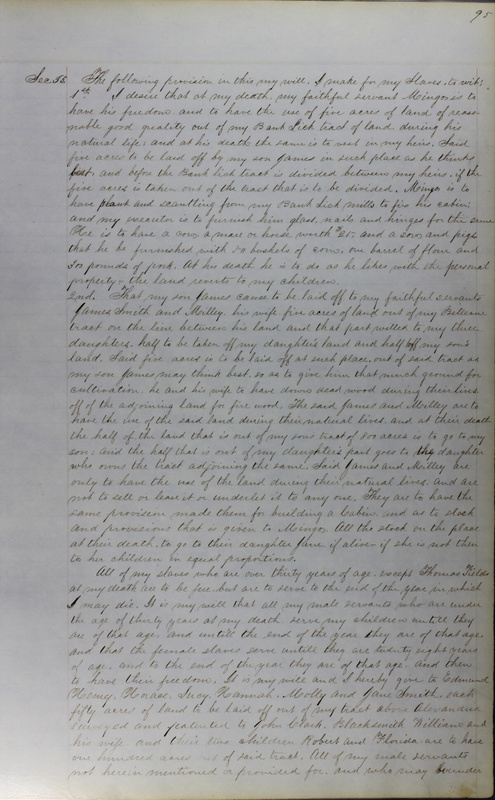 95
Sec. 35 The following provision in this my will, I make for my Slaves, to wit:
1st I desire that at my death, my faithful servant Mingo, is to
have his freedom and to have the use of five acres of land of reaso-
nable good quality out of my Bank Lick tract of land, during his
natural life; and at his death the same is to vest in my heirs. Said
five acres to be laid off by my son James in such place as he thinks
best, and before the Bank Lick tract is divided between my heirs, if the
five acres is taken out of the tract that is to be divided. Mingo is to
have plank and scantling from my Bank Lick mills to fix his cabin;
and my executor is to furnish him glass, nails and hinges for the same
He is to have a cow, a mare or horse worth $25. and a sow and pigs
that he be furnished with 50 bushels of corn, one barrel of flour and
300 pounds of pork. At his death he is to do as he likes with the personal
property - the land reverts to my children.
2nd. That my son James cause to be laid off to my faithful servants
James Smith and Milley, his wife five acres of land out of my Bellevue
tract on the line between his land and that part willed to my three
daughters, half to be taken off my daughter's land and half off my son's
land. Said five acres is to be laid off at such place, out of said tract as
my son James may think best, so as to give him that much ground for
cultivation, he and his wife to have down dead wood during their lives
off of the adjoining land for fire wood. The said James and Milley are to
have the use of the said land during their natural lives, and at their death
the half of the land that is out of my sons tract of 500 acres is to go to my
son; and the half that is out of my daughter's part goes to the daughter
who owns the tract adjoining the same. Said James and Milley are
only to have the use of the land during their natural lives, and are
not to sell or lease it or underlet it to any one. They are to have the
same provision made them for building a Cabin, and as to stock
and provisions that is given to Mingo. All the stock on the place
at their death, to go to their daughter Jane if alive - if she is not then
to her children in equal proportions.
All of my slaves who are over thirty years of age, except Thomas Fields
at my death are to be free, but are to serve to the end of the year in which
I may die. It is my will that all my male servants who are under
the age of thirty years at my death, serve my children untill they
are of that age, and untill the end of the year they are of that age.
and that the female slaves serve untill they are twenty eight years
of age, and to the end of the year they are of that age, and then
to have their freedom. It is my will and I hereby give to Edmund
Henry, Horace, Lucy, Hannah, Molly and Jane Smith, each
fifty acres of land to be laid off out of my tract above Alexandria
surveyed and patented to John Clark, Blacksmith William and
his wife and their two children Robert and Florida are to have
one hundred acres out of said tract. All of my male servants
not herein mentioned or provided for, and who may be under